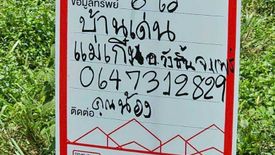 ข้อมูลทรัพย์
บ้านเด่น
แม่เกิ๋ง อ.วังชิ้น จ.แพร่
0647312829
ติดต่อ คุณน้อง